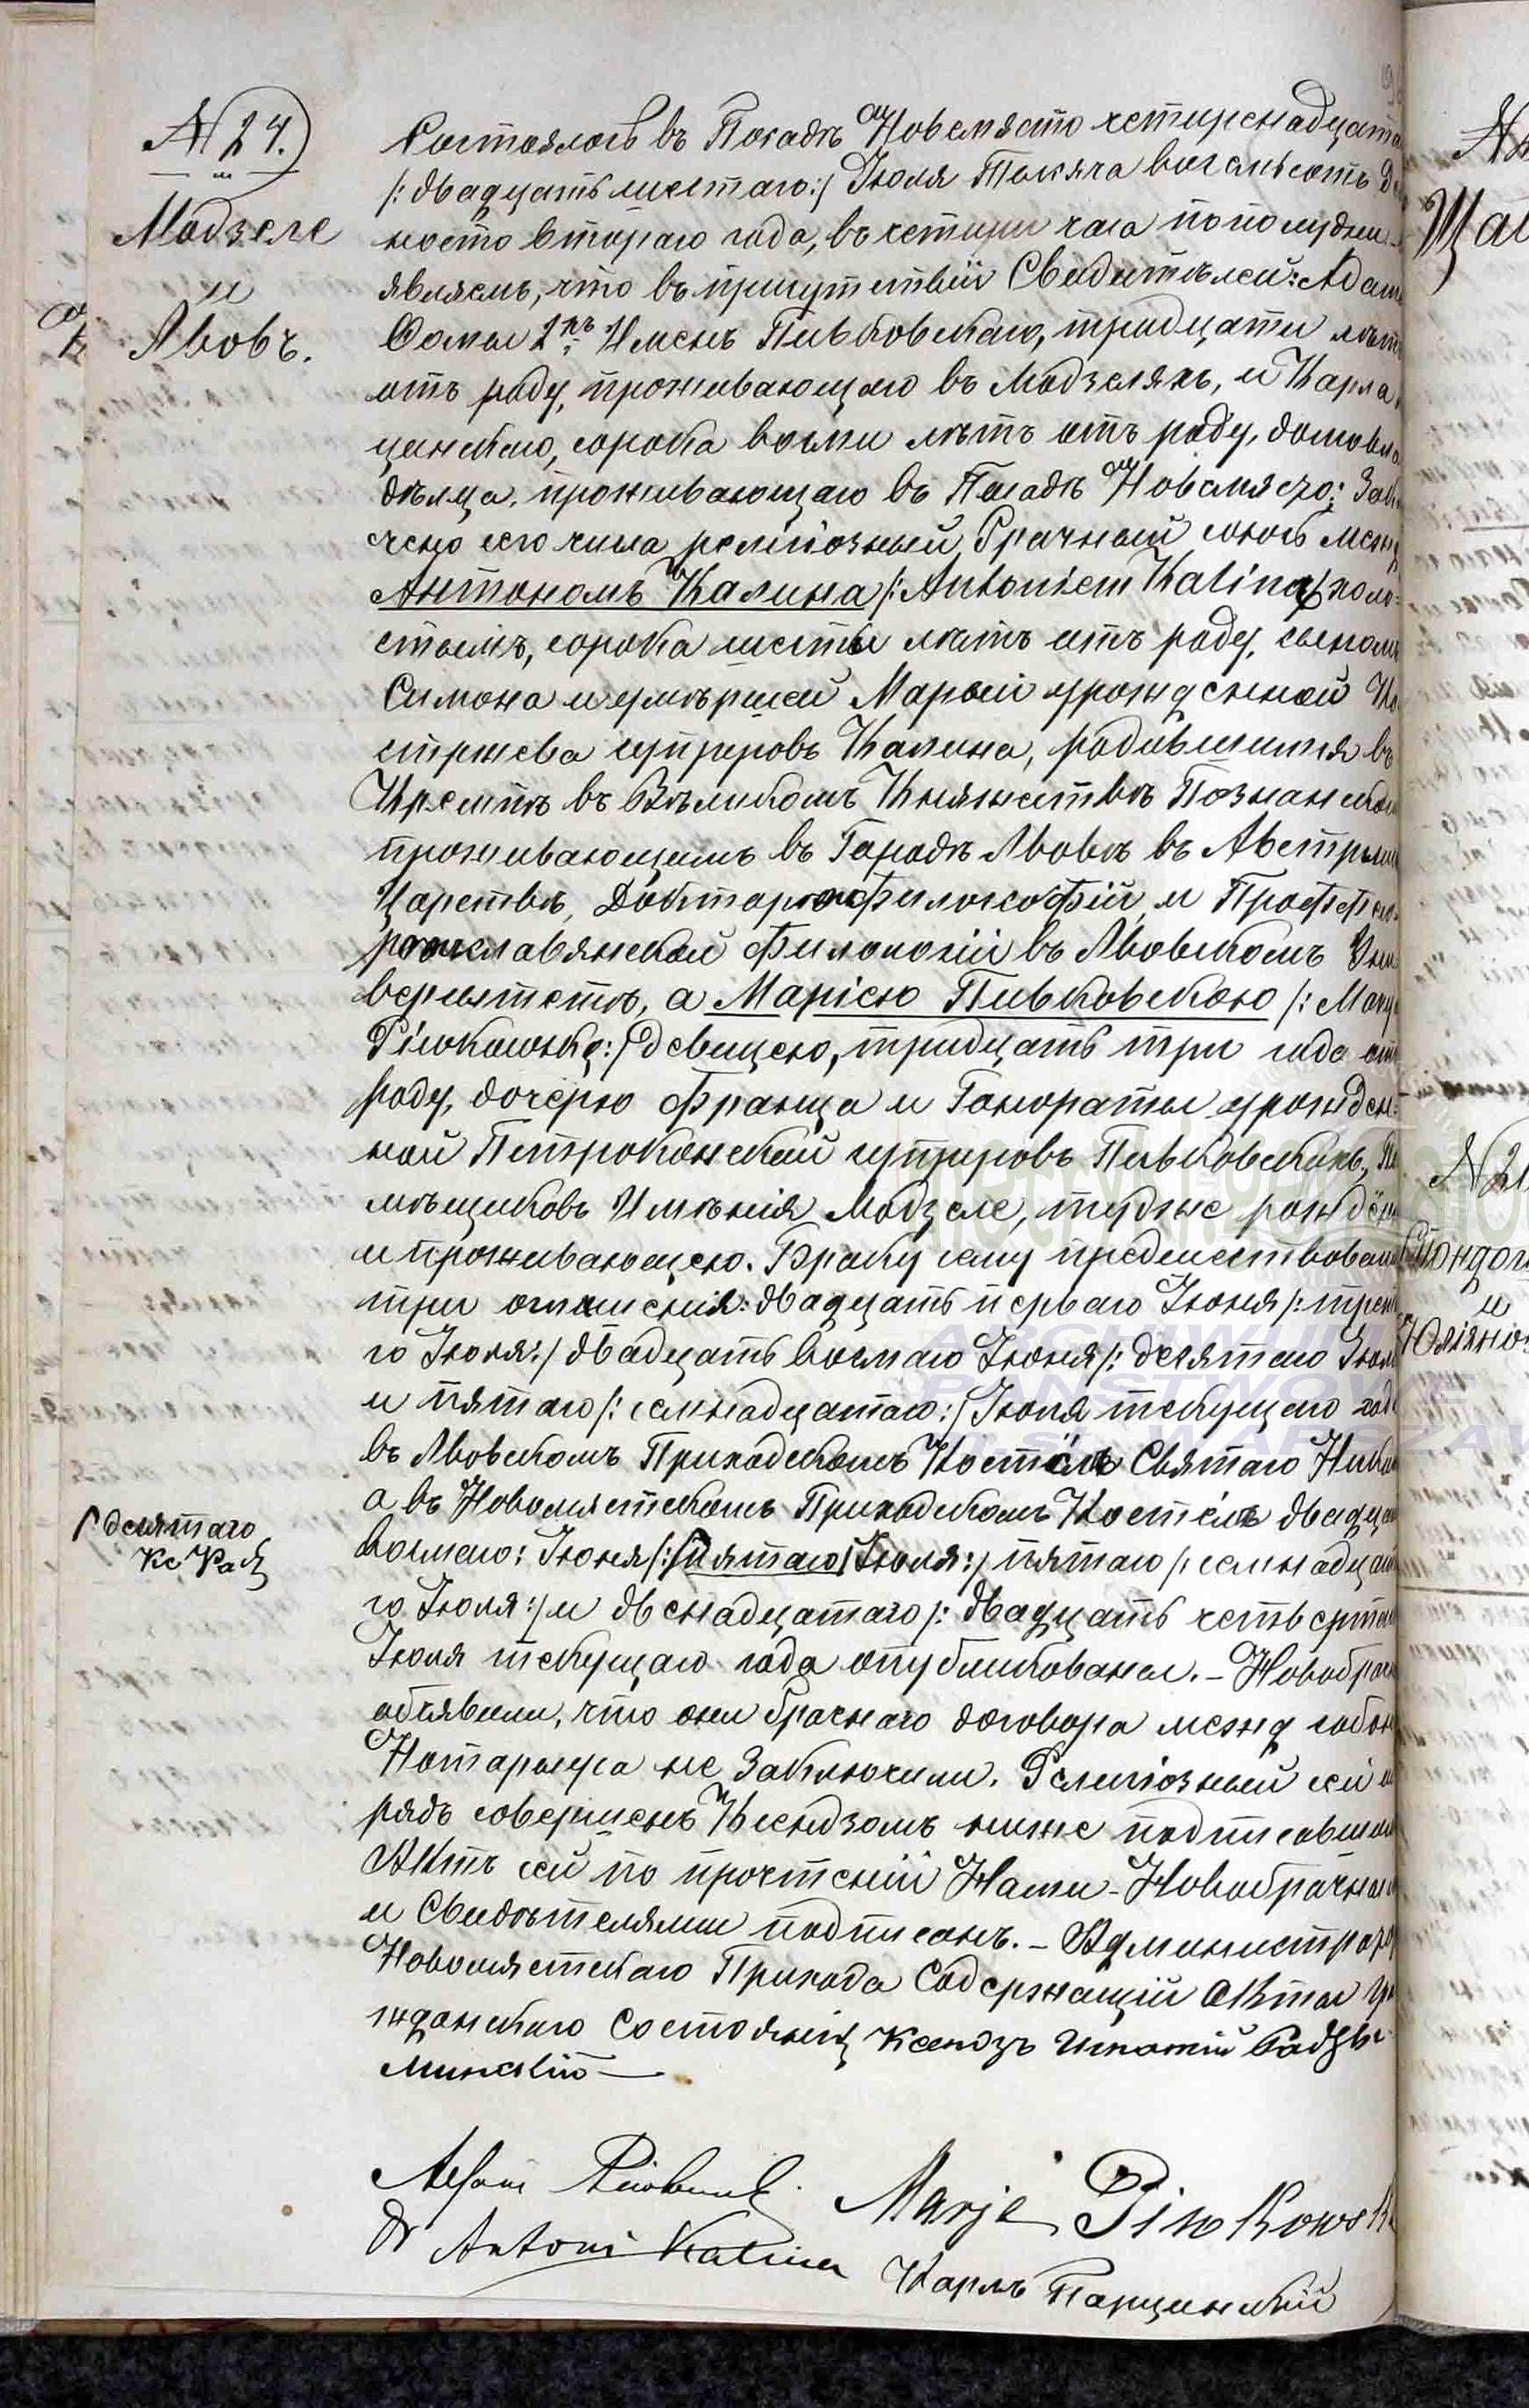 № 24.
Модзеле
и
Львовъ.
Состоялось въ Посадѣ Новемясто четырнадцата
/: двадцать шестаго :/ Іюля Тысяча восемьсотъ Де
носто втораго года, въ четыри часа по полудни
являемъ, что въ присутствіи Свидѣтелей: Адама
Фомы 2хъ Именъ Пивковскаго, тридцати лѣтъ
отъ роду, проживающаго въ Модзеляхъ, и Карла
цинскаго, сорока восми лѣтъ отъ роду, домовла
дѣльца, проживающаго въ Посадѣ Новемясто; Заклю
чено сего числа религіозный Брачный союзъ межд
Антономъ Калина /: Antoniem Kalina :/ холо=
стымъ, сорока шести лѣтъ отъ роду, сыномъ
Симона и умѣршей Марыи урожденной Ко
стржева супруговъ Калина, родившимся въ
Кремпѣ въ Вѣликомъ Княжествѣ Познанско
проживающимъ въ Городѣ Львовѣ въ Австрыи
Царствѣ, Докторомъ Философіи, и Профѣссо
ромъ славянской Филологіи въ Львовскомъ Уни
верситетѣ, а Маріею Пивковскою /: Mary
Piwkowską :/ девицею, тридцать три года отъ
роду, дочерю Франца и Гонораты урожден=
ной Петроконской супруговъ Пивковскихъ, По
мѣщиковъ Имѣнія Модзеле, тудже рождён
и проживающею. Браку сему предшествовали
три оглашенія: двадцать перваго Іюня /: треть
го Іюля :/ двадцать восмаго Іюня /: десятаго Іюл
и пятаго /: семнадцатаго :/ Іюля текущаго года
въ Львовскомъ Приходскомъ Костёлѣ Святаго Нико
а въ Новомястскомъ Приходскомъ Костёлѣ двадца
восмаго: Іюня /: пятаго Іюля :/ пятаго /: семнадцат
го Іюля :/ и двенадцатаго /: двадцать четвертаг
Іюля текущаго года опубликованы. – Новобрач
объявили, что они брачнаго договора межд собою
Нотарыуса не Заключили. Религіозный сей об
рядъ совершенъ Ксендзомъ ниже подписавшим
Актъ сей по прочтеніи Нами – Новобрачным
и Свидѣтелями подписанъ. – Администратор
Новомястскаго Прихода Содержащій Акты Гра
жданскаго Состоянія Ксендзъ Игнатій Радзы
минскій —
десятаго
Кс Рад
Adam Piwkowski. Marja Piwkowsk
Dr Antoni Kalina Карлъ Парцинскій
№ 2